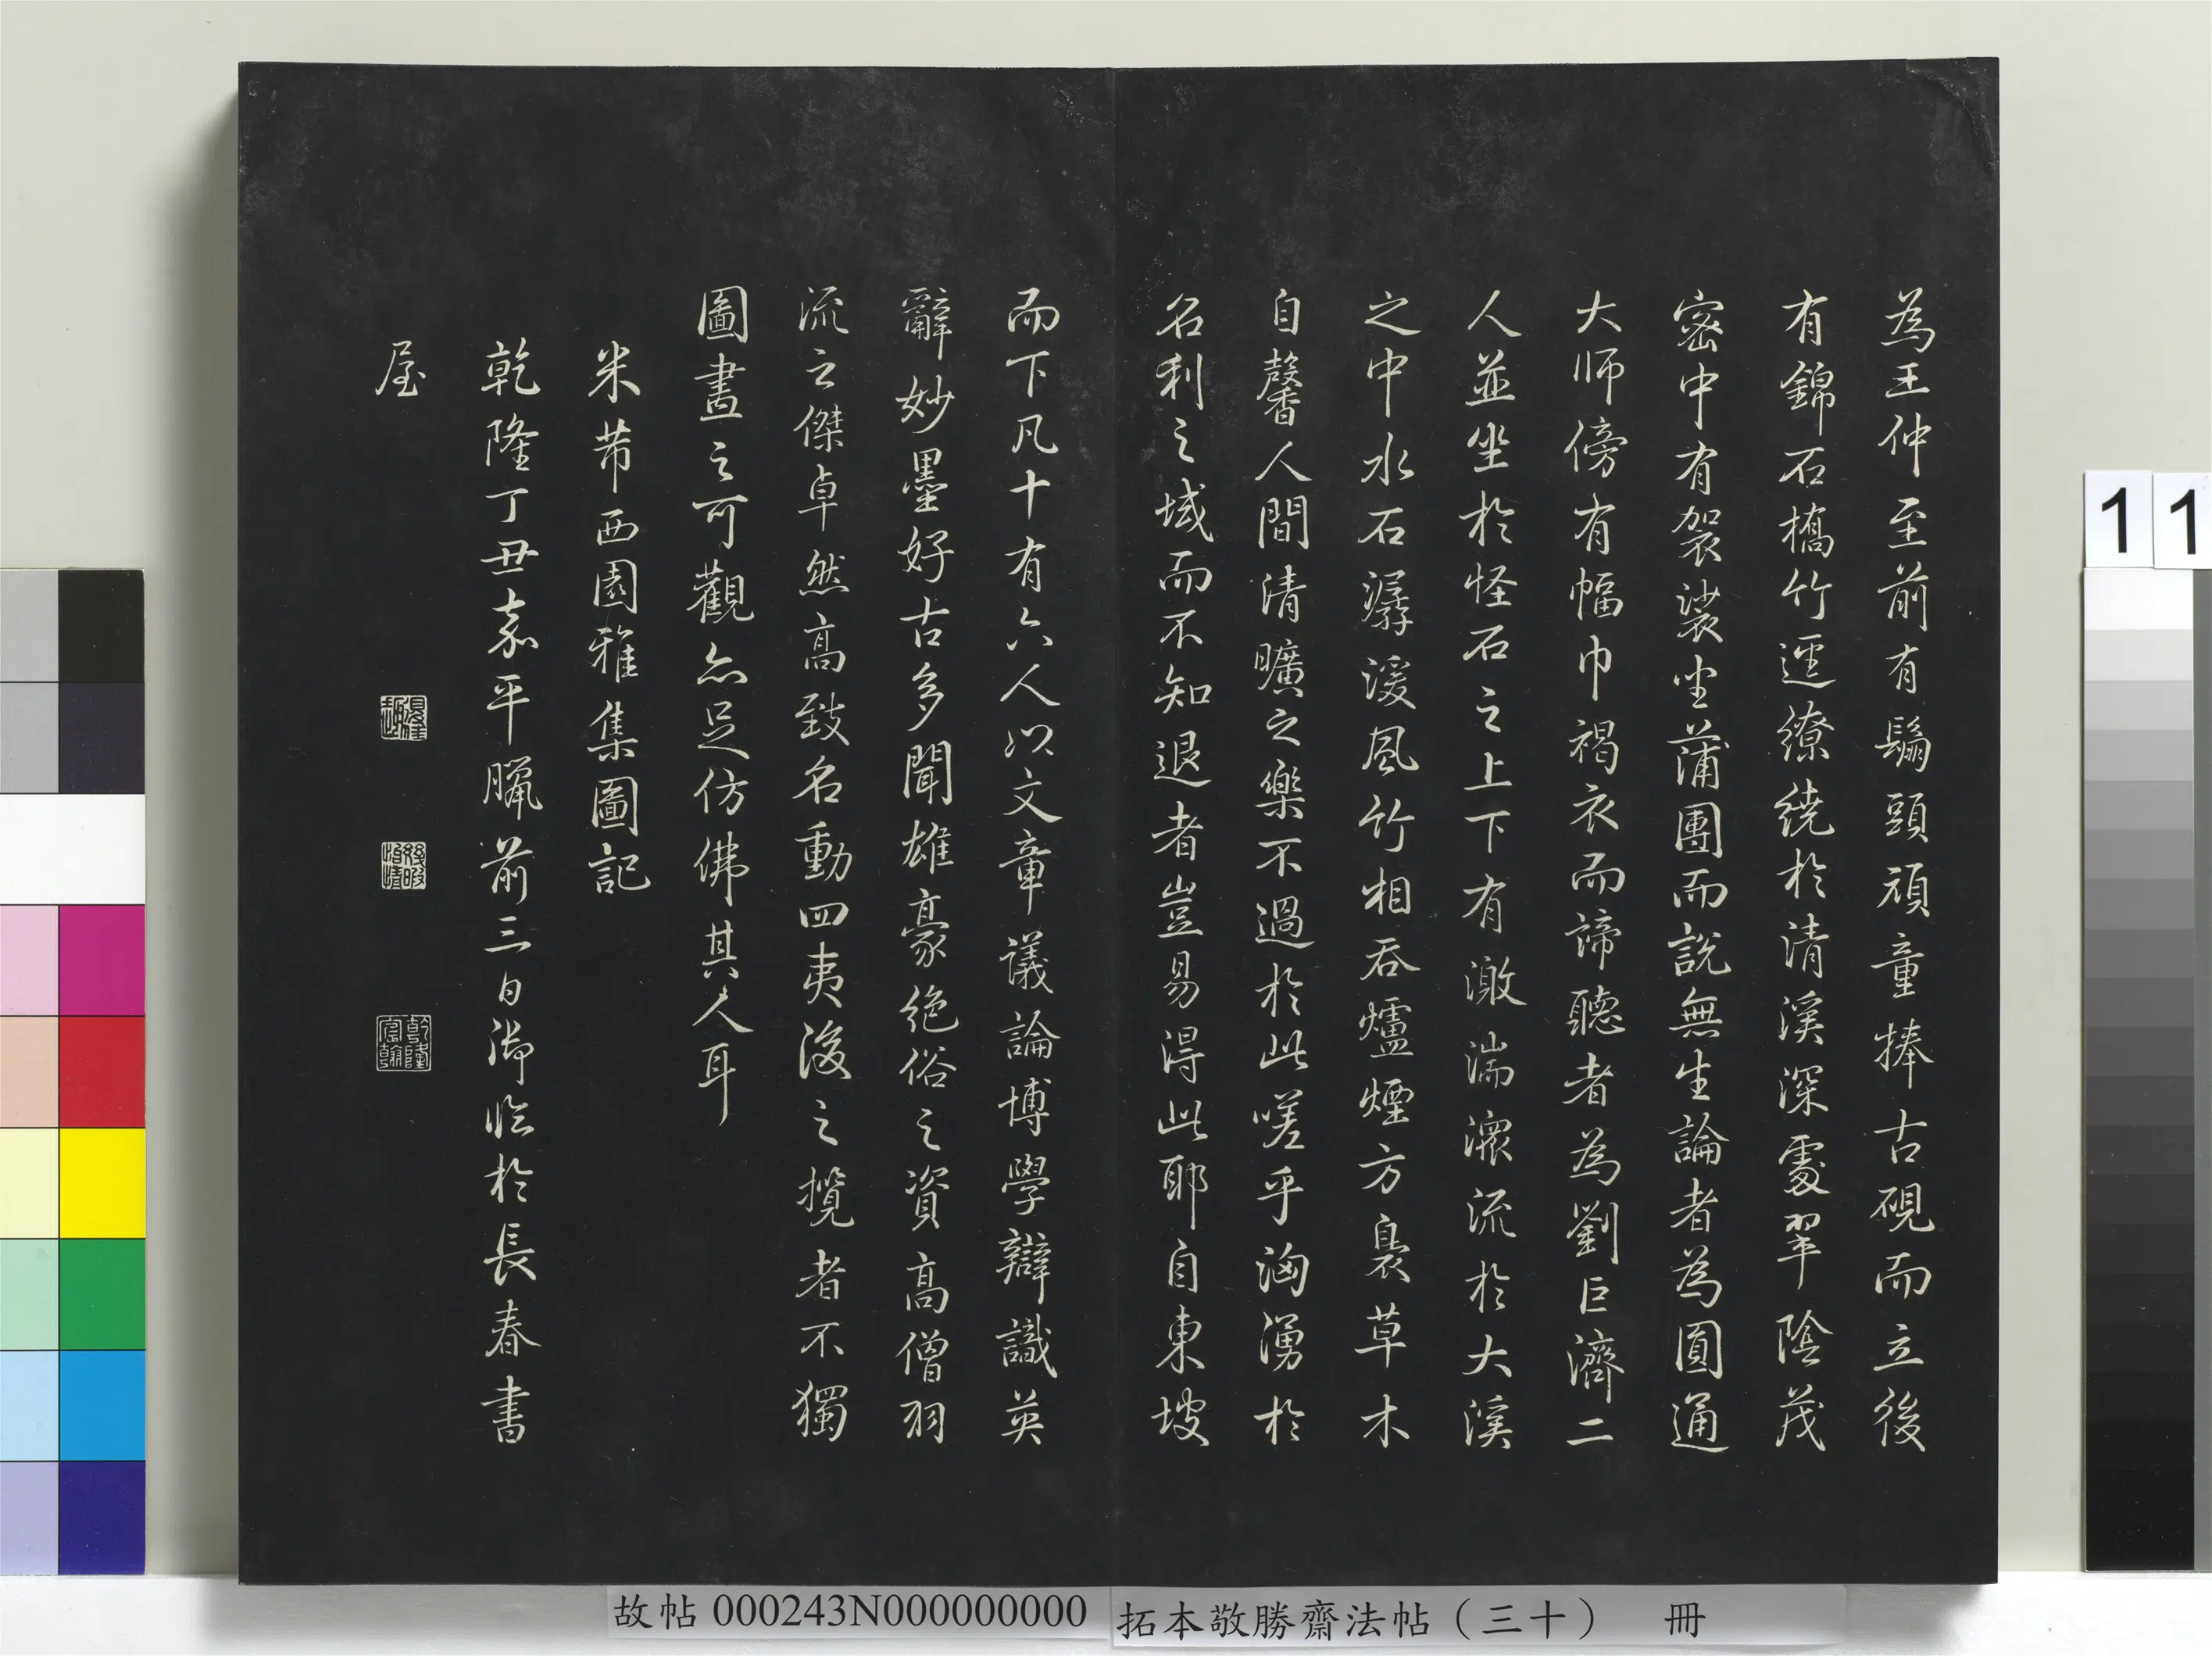 為王仲至前有鬅頭頑童捧古硯而立後
有錦石橋竹逕繚繞於清溪深處翠陰茂
密中有袈裟坐蒲團而說無生論者為圓通
大師傍有幅巾褐衣而諦聽者為劉巨濟二
人並坐於怪石之上下有激湍潨流於大溪
之中水石潺湲風竹相吞爐煙方裊草木
自馨人間清曠之樂不過於此嗟乎洶湧於
名利之域而不知退者豈易得此耶自東坡
而下凡十有六人以文章議論博學辯識英
辭妙墨好古多聞雄豪絕俗之資高僧羽
流之傑卓然高致名動四夷後之攬者不獨
圖畫之可觀亦足仿佛其人耳
米芾西園雅集圖記
乾隆丁丑嘉平臘前三日御臨於長春書
屋
乾隆宸翰
故帖 000243N000000000
拓本敬勝齋法帖（三十） 冊
1
1